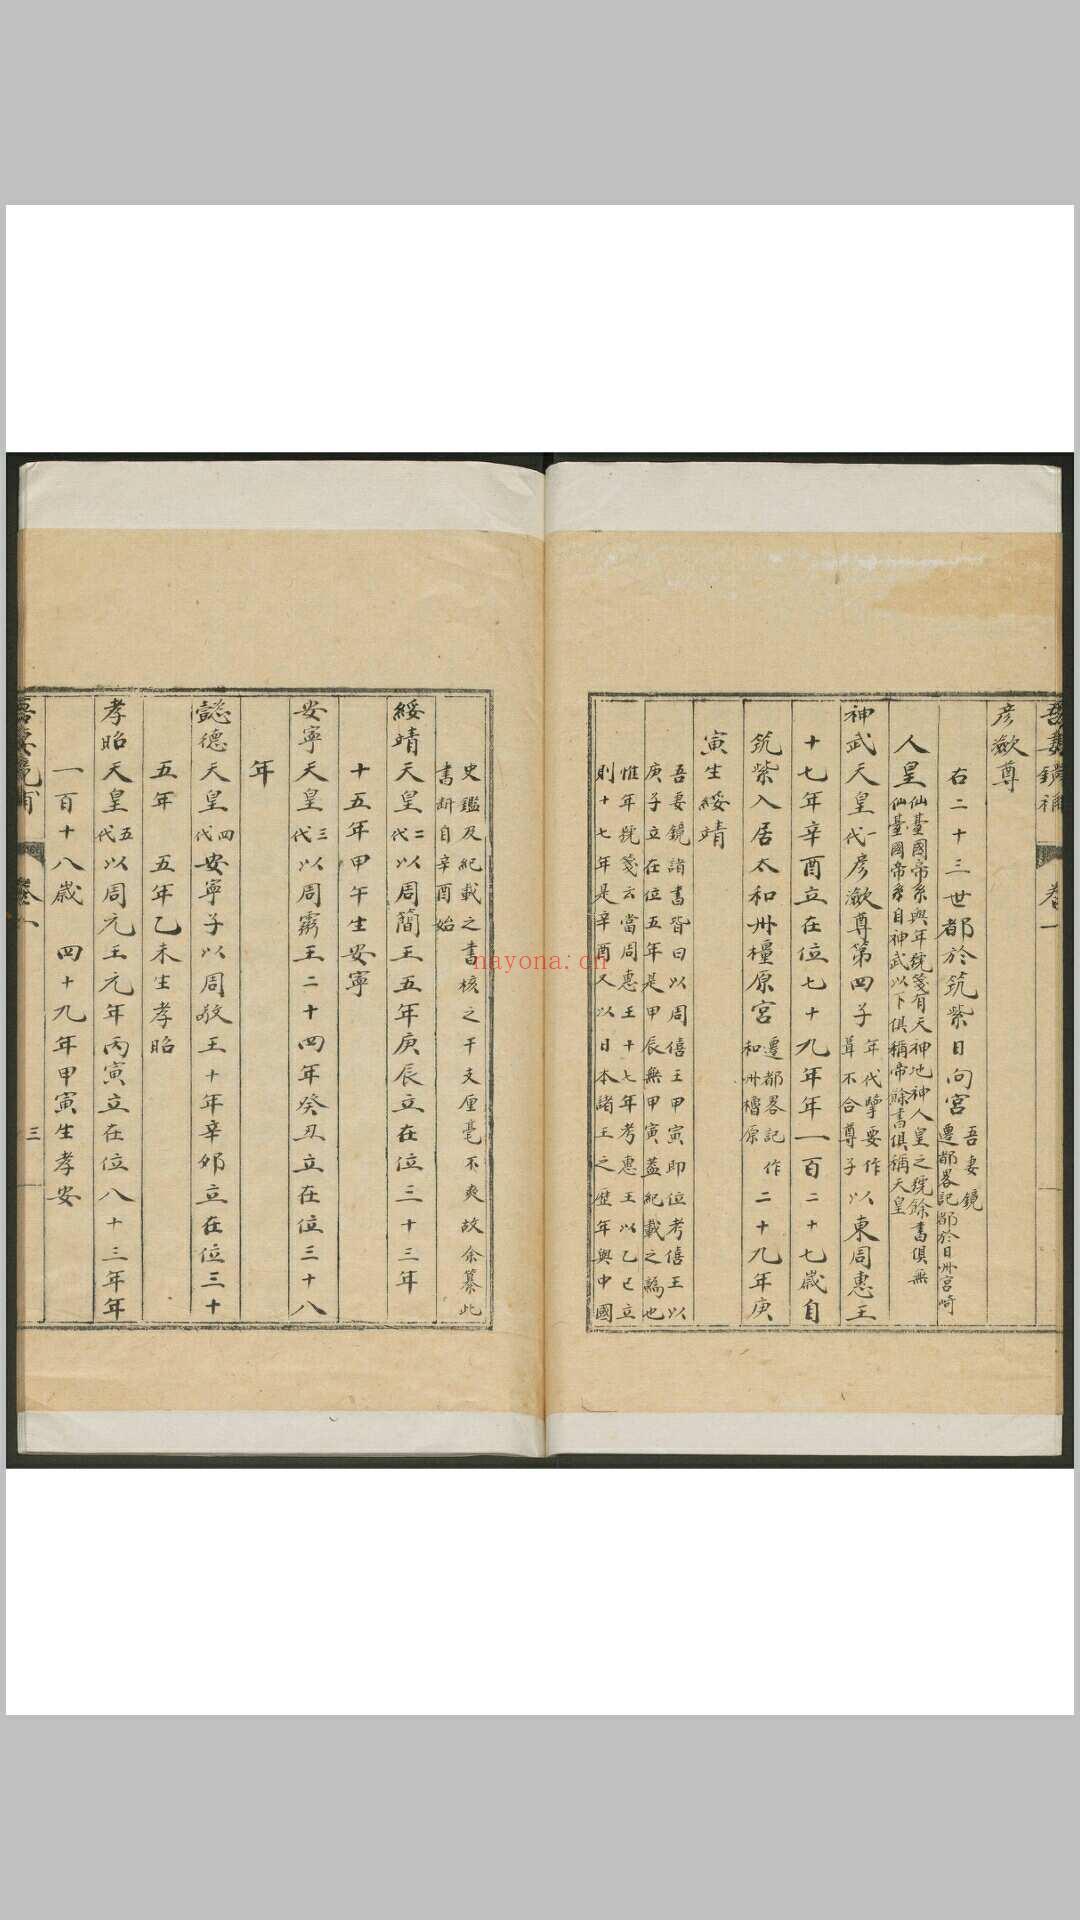 吾妻鏡補 卷一
彦瀲尊
右二十三世都於筑紫日向宮 吾妻鏡
遷都畧記都於日州宮崎
人皇 仙臺國帝系與年號箋有天神地神人皇之號餘書俱無
仙臺國帝系自神武以下俱稱帝餘書俱稱天皇
神武天皇 一代 彦瀲尊第四子 年代㩵要作
葺不合尊子 以東周惠王
十七年辛酉立在位七十九年年一百二十七歲自
筑紫入居太和州橿原宮 遷都畧記作
和州檣原 二十九年庚
寅生綏靖
吾妻鏡諸書皆曰以周僖王甲寅即位考僖王以
庚子立在位五年是甲辰無甲寅蓋紀載之譌也
惟年號箋云當周惠王十七年考惠王以乙巳立
則十七年是辛酉又以日本諸王之歷年與中國
史鑑及紀載之書核之干支厘毫不爽故余纂此
書斷自辛酉始
綏靖天皇 二代 以周簡王五年庚辰立在位三十三年
十五年甲午生安寧
安寧天皇 三代 以周靈王二十四年癸丑立在位三十八
年
懿德天皇 四代 安寧子以周敬王十年辛卯立在位三十
五年 五年乙未生孝昭
孝昭天皇 五代 以周元王元年丙寅立在位八十三年年
一百十八歲 四十九年甲寅生孝安
吾妻鏡補 卷一 三
nayona.cn